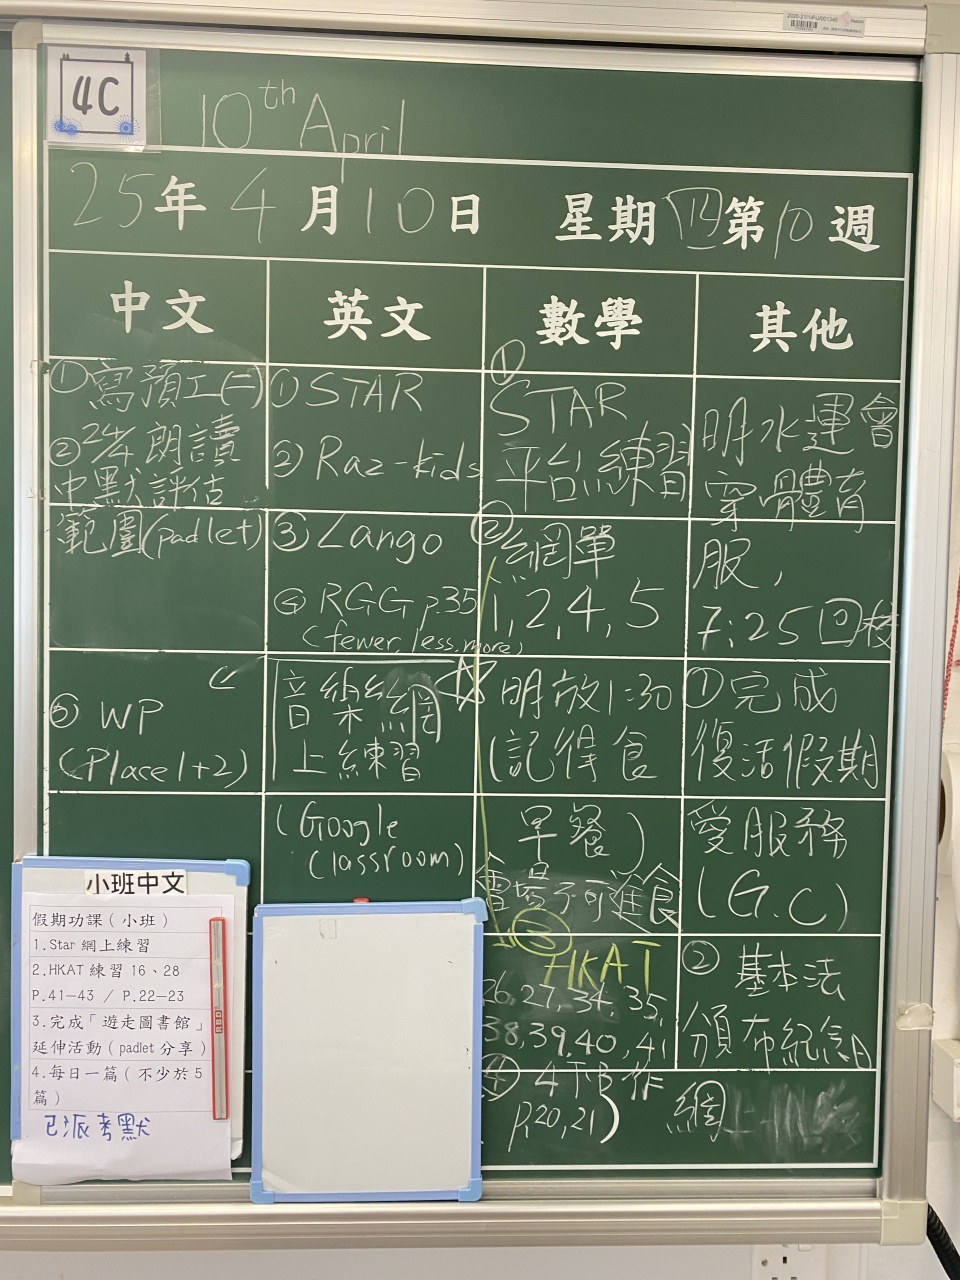 4C
10th April
25年4月10日 星期四 第10週
中文 英文 數學 其他
① 寫預工(二)
② 24/4 朗讀
中默評估
範圍(padlet)
① STAR
② Raz-kids
③ Lango
④ RGG p.35
(fewer, less, more)
⑤ WP
(Place 1+2)
音樂網
上練習
(Google
Classroom)
①
STAR
平台練習
② 網單
1, 2, 4, 5
明放1:30
(記得食
早餐)
會場不可進食
③
HKAT
26, 27, 34, 35,
38, 39, 40, 41
④ 4下B 作
p.20, 21)
明水運會
穿體育
服,
7:25回校
① 完成
復活假期
愛服務
(G.C)
② 基本法
頒布紀念日
網上
小班中文
假期功課(小班)
1.Star 網上練習
2.HKAT 練習 16、28
P.41-43 / P.22-23
3.完成「遊走圖書館」
延伸活動(padlet 分享)
4.每日一篇(不少於5
篇)
已派考默